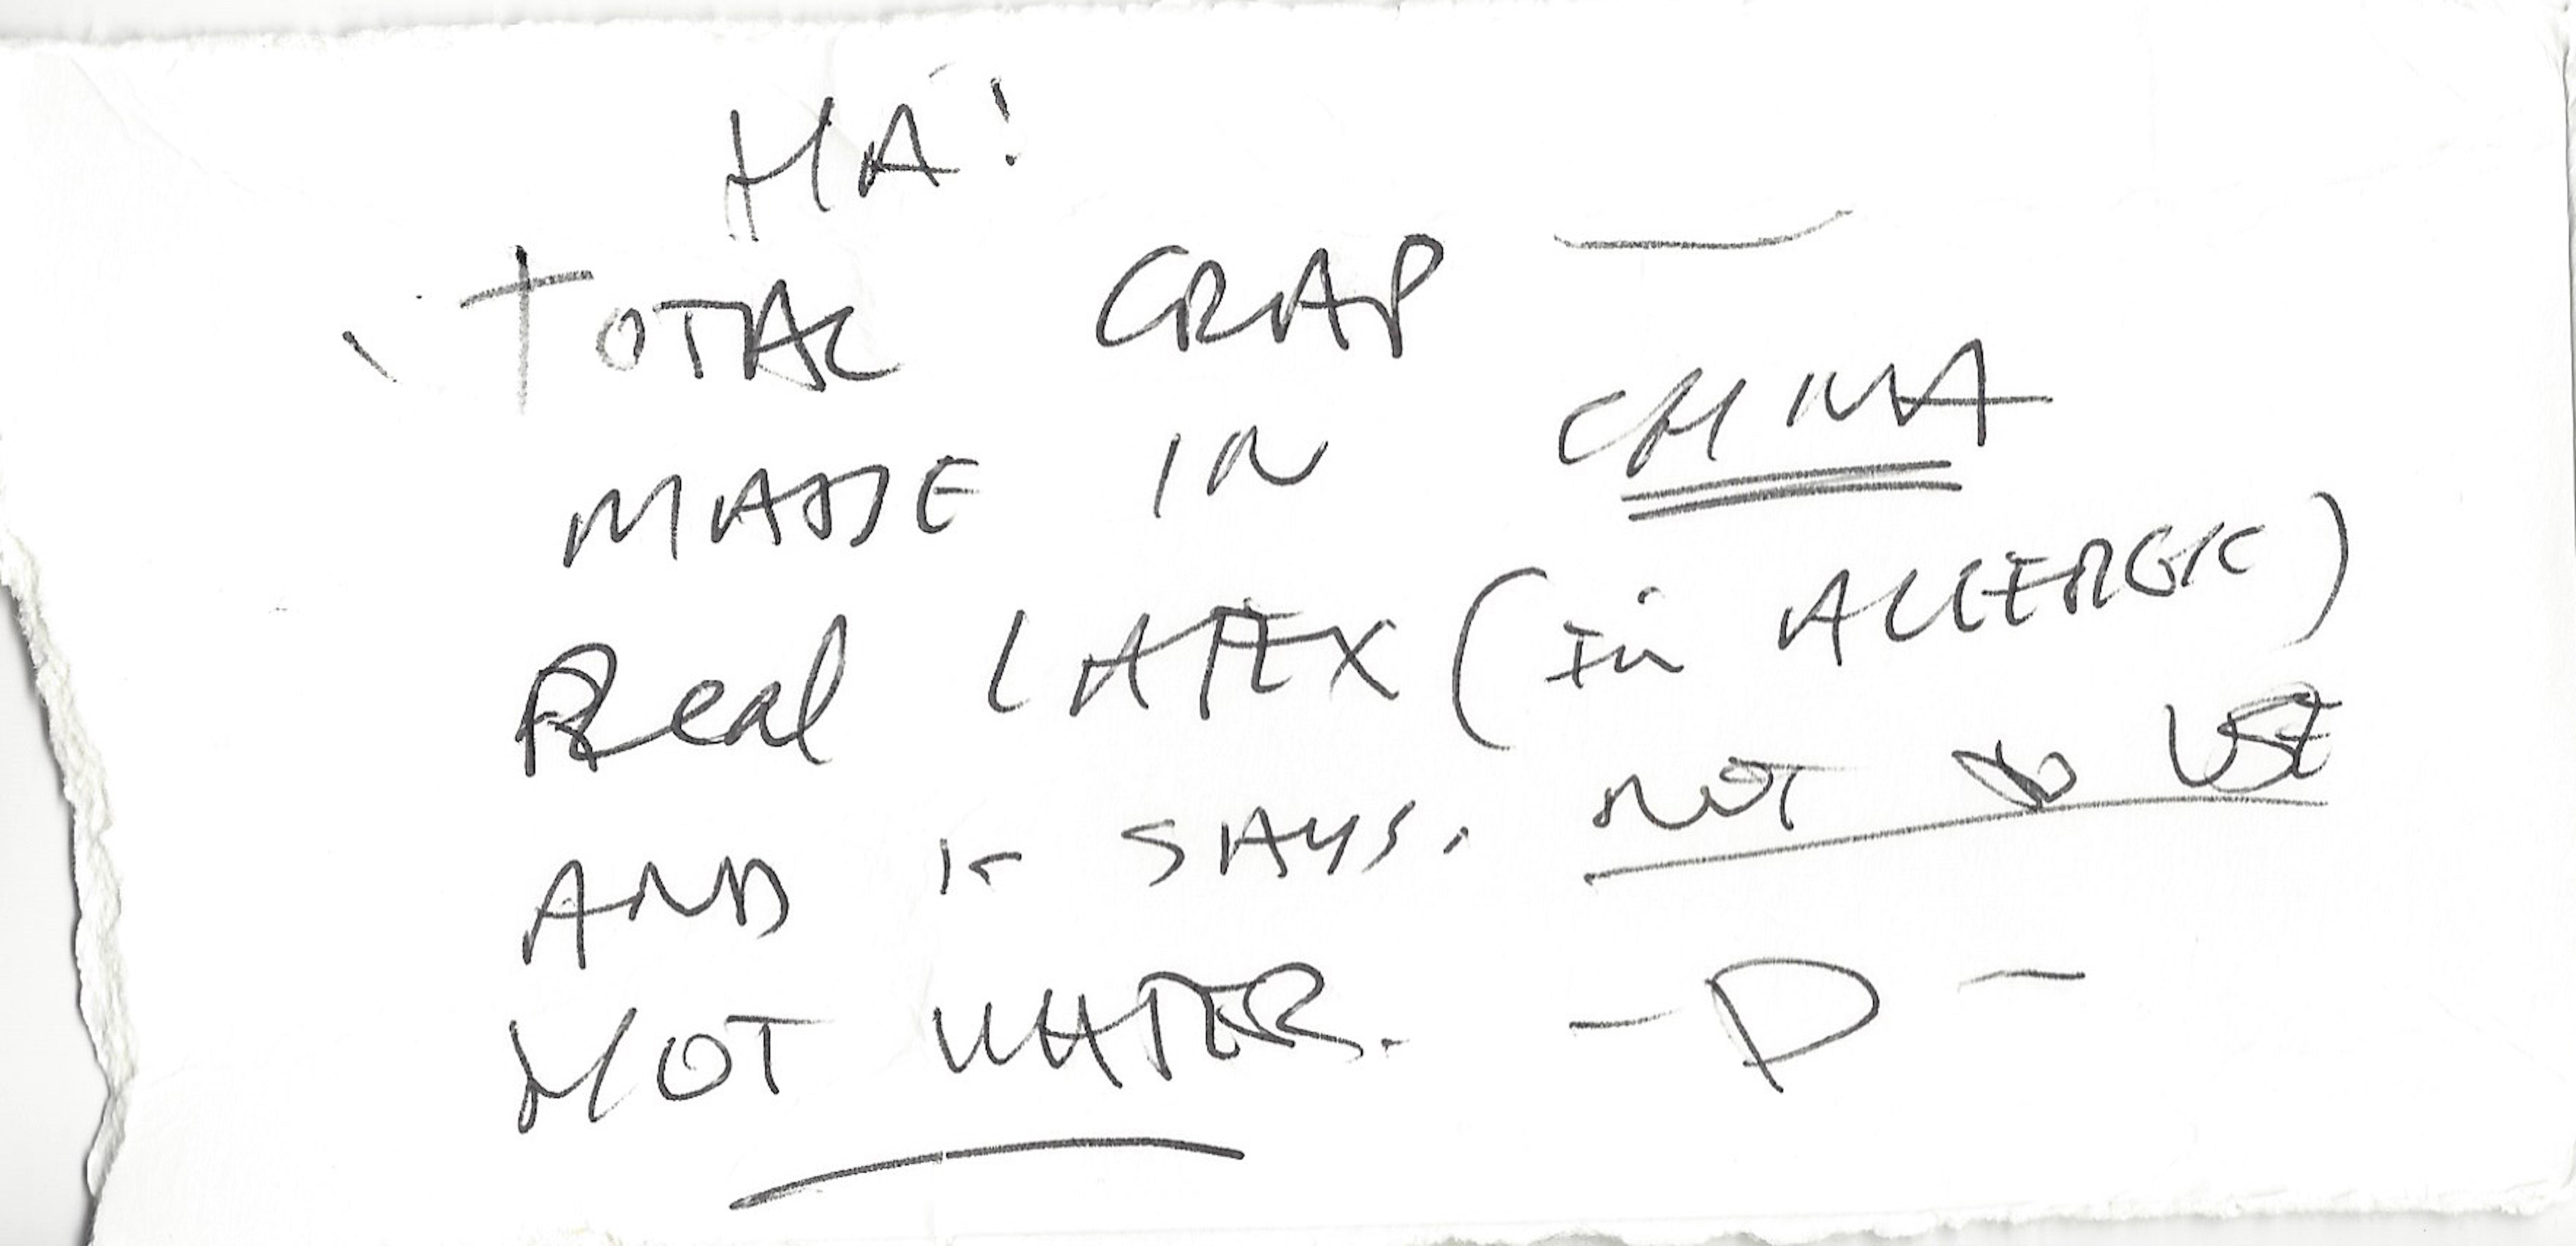 HA!
TOTAL CRAP —
MADE IN CHINA
Real LATEX (Im ALLERGIC)
AND IT SAYS. NOT to USE
HOT WATER. - D -